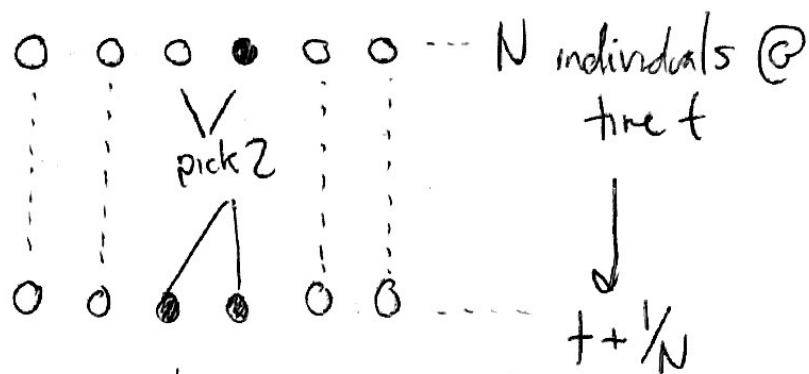 N individuals @
time t
pick 2
t + 1/N